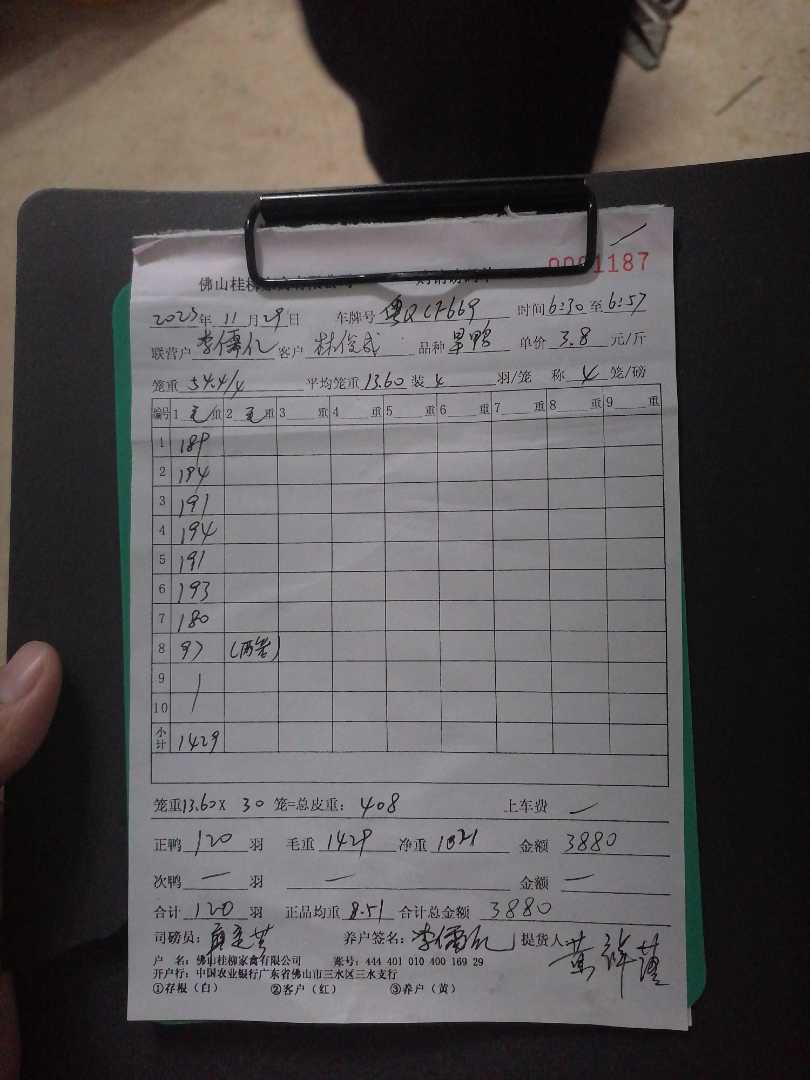 佛山桂柳
0001187
2023年 11月29日 车牌号 粤QCF669 时间6:30至6:57
联营户 李儒亿 客户 林俊成 品种 旱鸭 单价 3.8 元/斤
笼重 54.4/4 平均笼重 13.60 装 4 羽/笼 称 4 笼/磅
编号 1 毛 重 2 毛 重 3 重 4 重 5 重 6 重 7 重 8 重 9 重
1 189
2 194
3 191
4 194
5 191
6 193
7 180
8 97 (两笼)
9
10
小计 1429
笼重13.60× 30 笼=总皮重: 408 上车费 —
正鸭 120 羽 毛重 1429 净重 1021 金额 3880
次鸭 — 羽 — 金额 —
合计 120 羽 正品均重 8.51 合计总金额 3880
司磅员: 养户签名: 李儒亿 提货人 黄
户 名: 佛山桂柳家禽有限公司 账号: 444 401 010 400 169 29
开户行: 中国农业银行广东省佛山市三水区三水支行
①存根（白） ②客户（红） ③养户（黄）